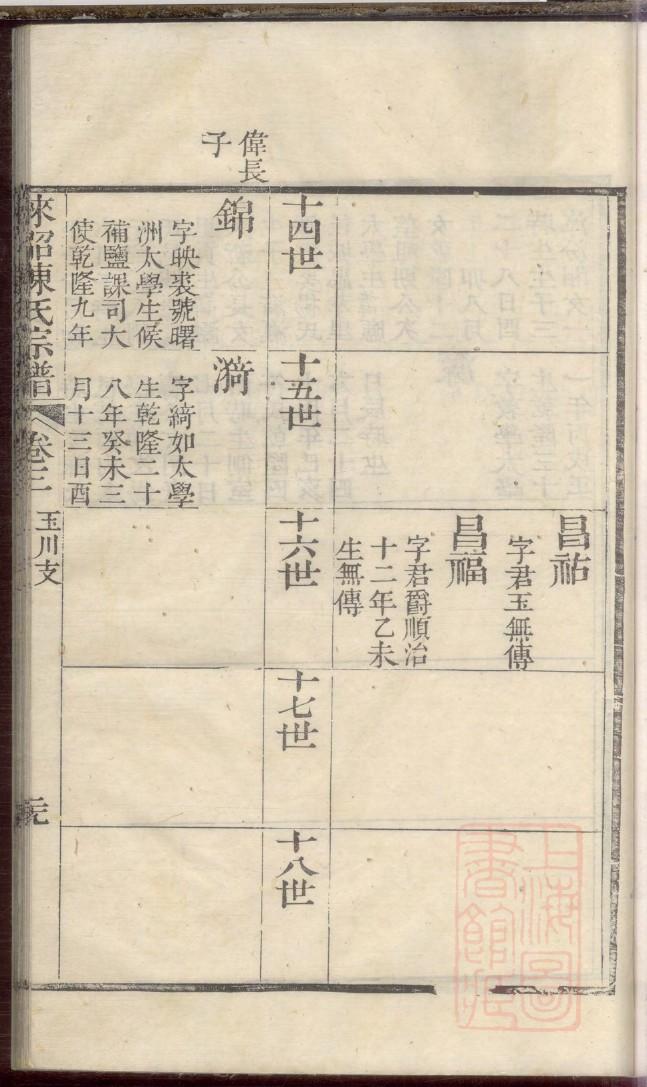 昌祐
字君玉無傳
昌福
字君爵順治
十二年乙未
生無傳
十四世
十五世
十六世
十七世
十八世
偉長
子
錦
字映裘號曙
洲太學生候
補鹽課司大
使乾隆九年
漪
字綺如太學
生乾隆二十
八年癸未三
月十三日酉
陳氏宗譜
卷三
玉川支
上海圖
書館藏